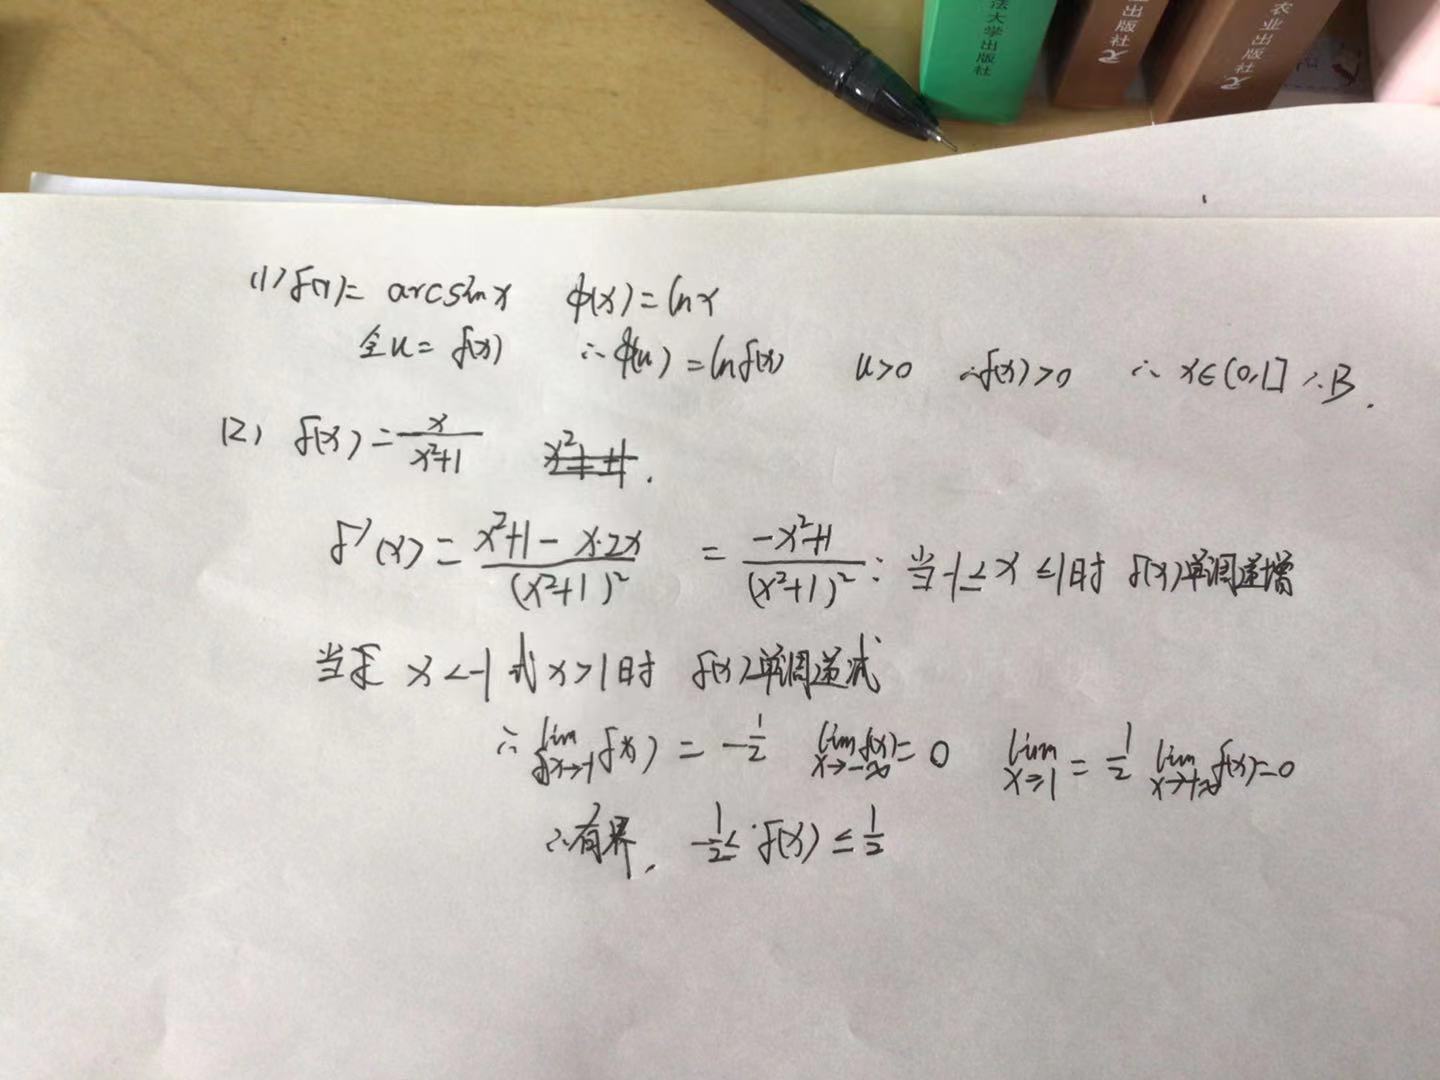 法大学出版社
出版社
农业出版社
(1) f(x)= arcsinx φ(x)=lnx
令u= f(x) ∴φ(u)=lnf(x) u>0 ∴f(x)>0 ∴ x∈(0,1] ∴B.
(2) f(x)=x/(x²+1)
f'(x)=(x²+1-x·2x)/(x²+1)² = (-x²+1)/(x²+1)² : 当-1≤x≤1时 f(x)单调递增
当 x<-1或x>1时 f(x)单调递减
∴ lim x→-1 f(x) = -1/2 lim x→-∞ f(x)=0 lim x→1 = 1/2 lim x→+∞ f(x)=0
∴有界. -1/2≤ f(x) ≤1/2